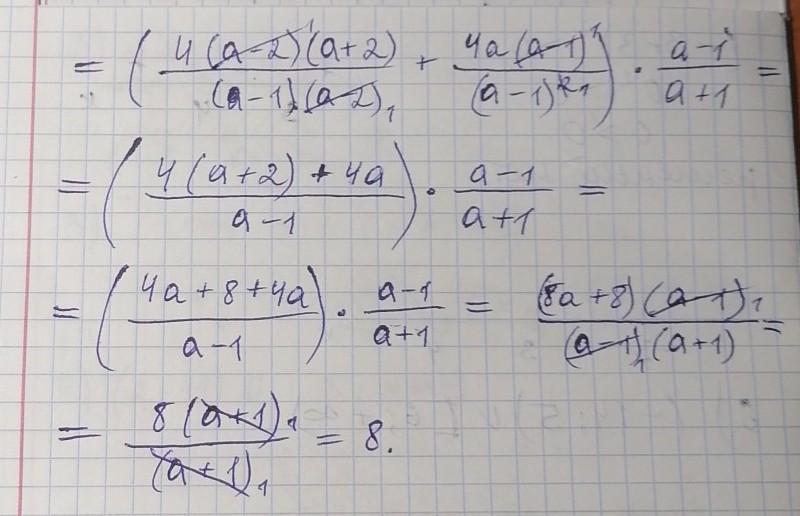 = ( 4(a-2)¹(a+2) / (a-1)(a-2)₁ + 4a(a-1)¹ / (a-1)²₁ ) · a-1 / a+1 =
= ( 4(a+2)+4a / a-1 ) · a-1 / a+1 =
= ( 4a+8+4a / a-1 ) · a-1 / a+1 = (8a+8)(a-1)₁ / (a-1)₁(a+1) =
= 8(a+1)₁ / (a+1)₁ = 8.